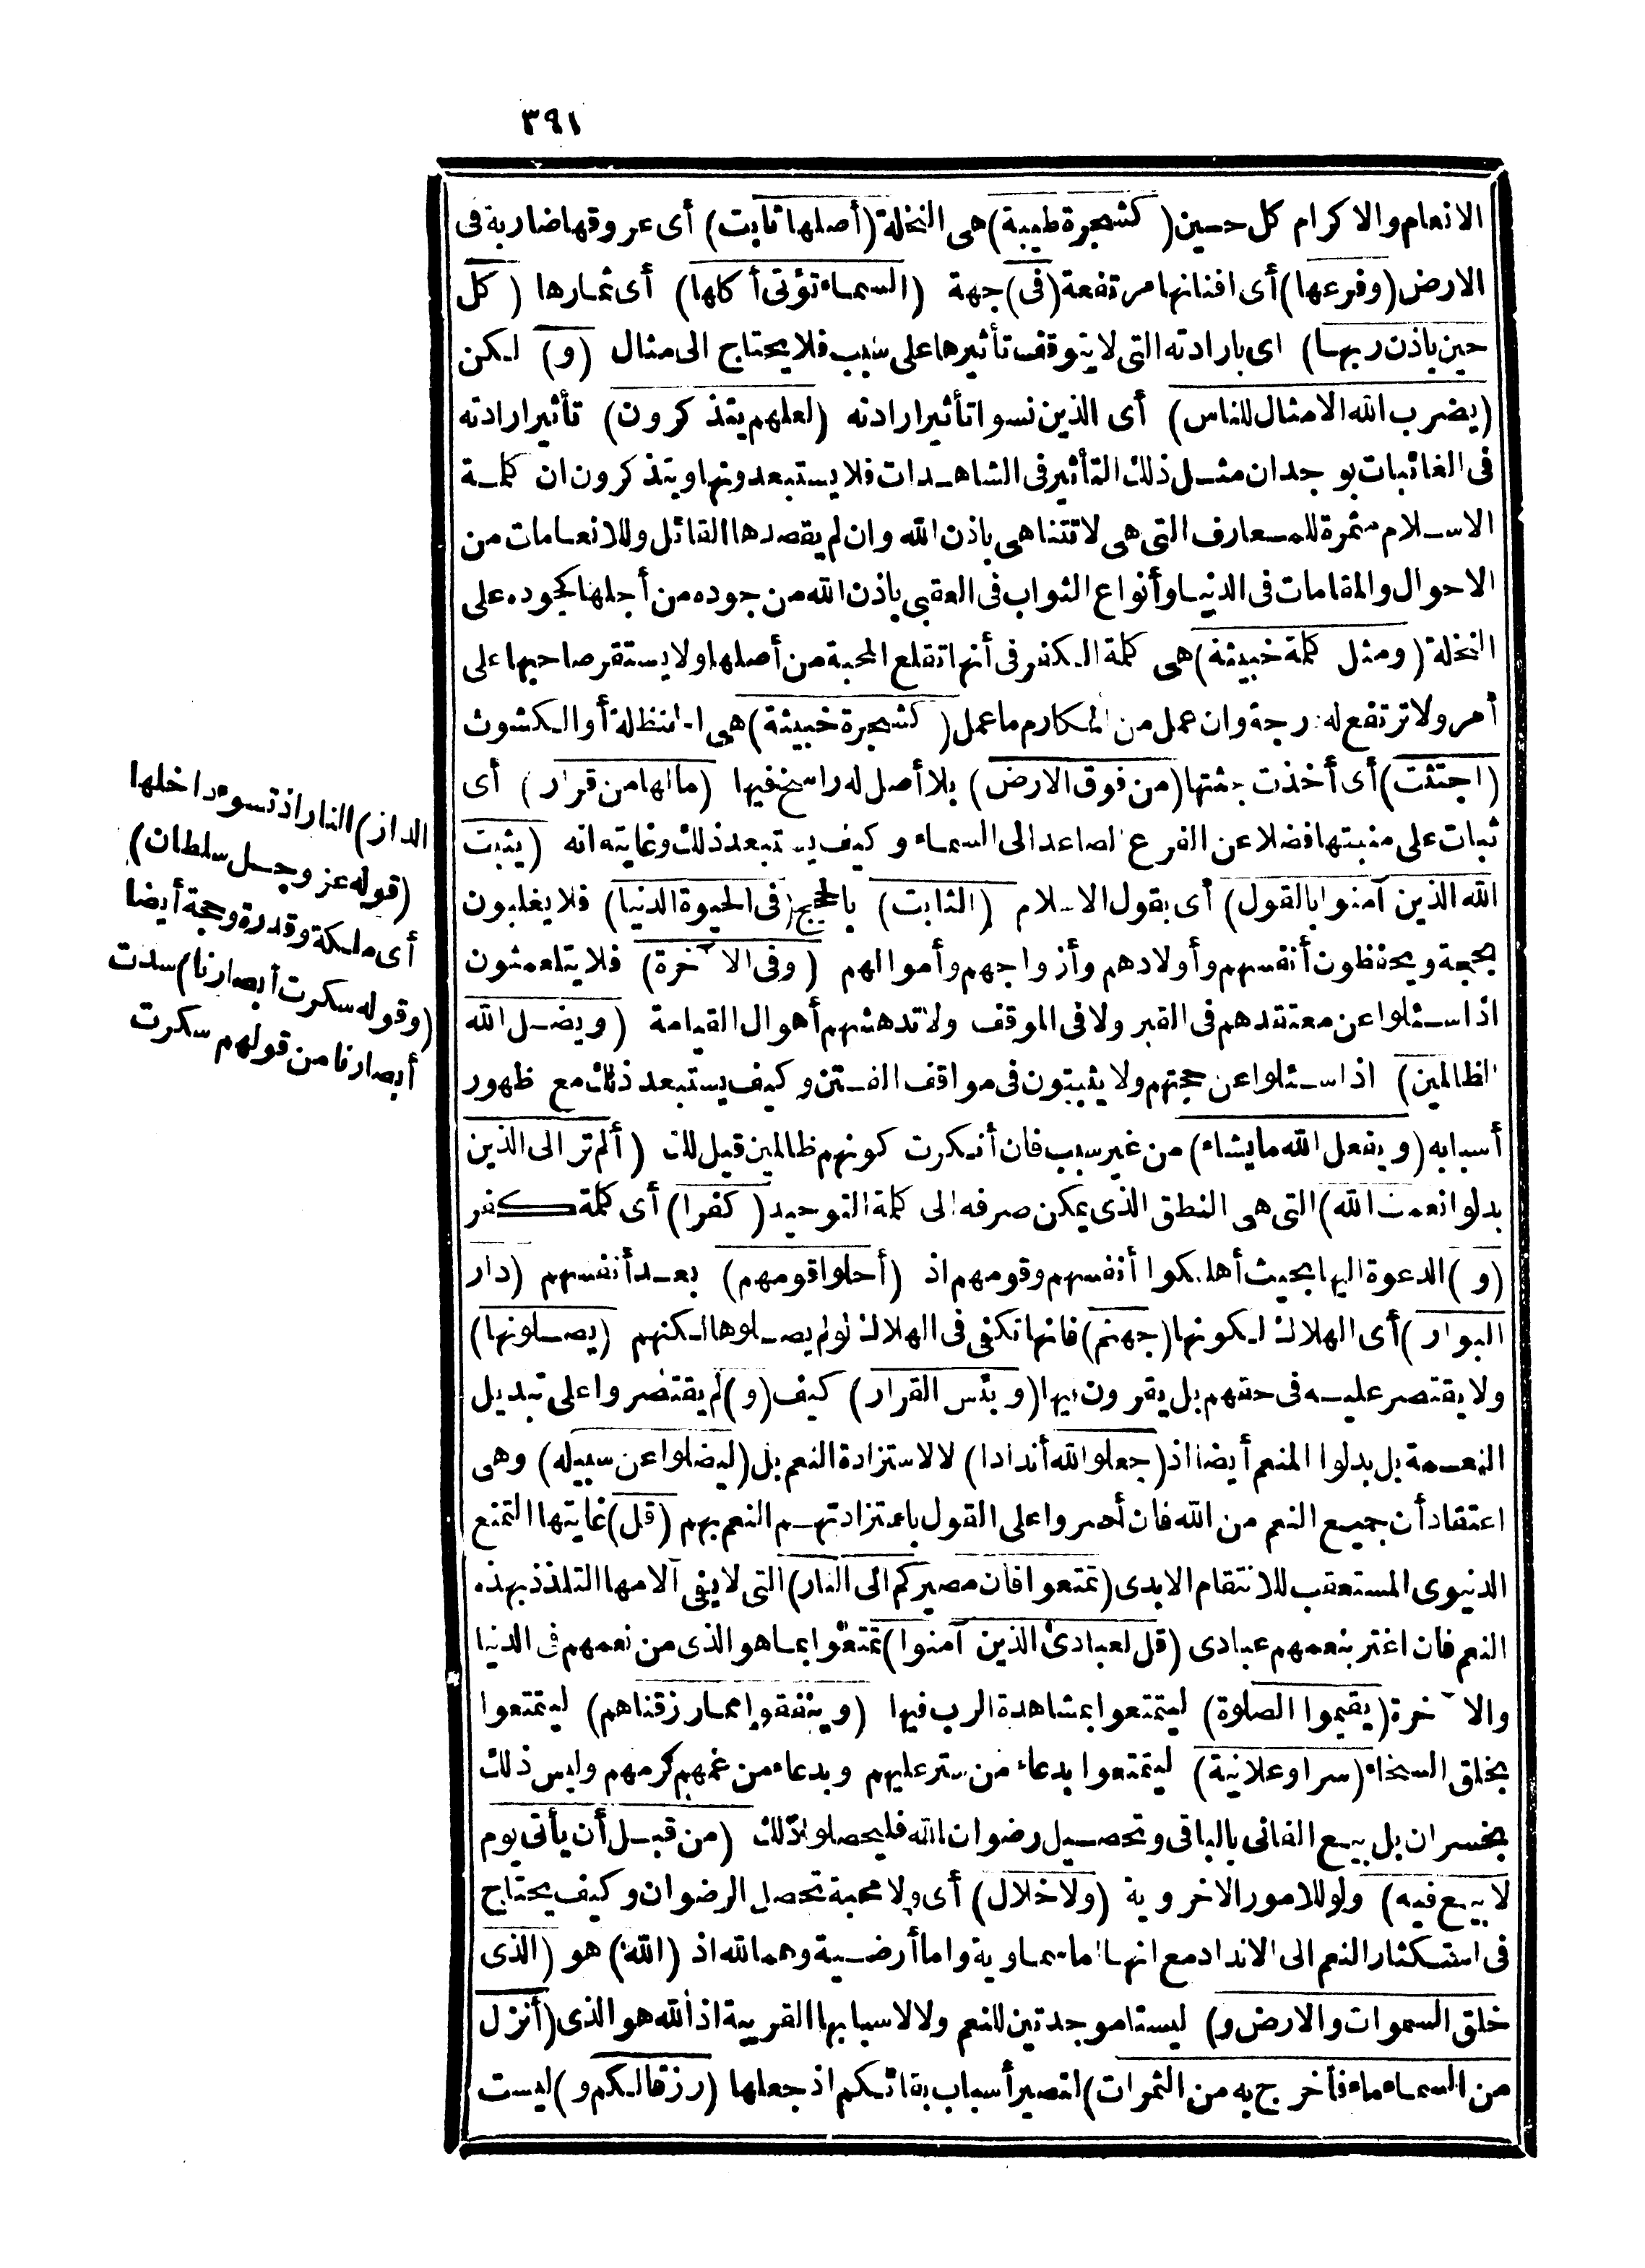 ٣٩١
الانعام والاكرام كل حسين (كشجرة طيبة) هى النخلة (أصلها ثابت) أى عروقها ضاربة فى
الارض (وفرعها) أى افنانها مرتفعة (فى) جهة (السماء تؤتى أكلها) أى ثمارها (كل
حين باذن ربها) اى بارادته التى لا يتوقف تأثيرها على سبب فلا يحتاج الى مثال (و) لكن
(يضرب الله الامثال للناس) أى الذين نسوا تأثير ارادته (لعلهم يتذكرون) تأثير ارادته
فى الغائبات بوجدان مثل ذلك التأثير فى الشاهدات فلا يستبعدونها ويتذكرون ان كلمة
الاسلام مثمرة للمعارف التى هى لا تتناهى باذن الله وان لم يقصدها القائل وللانعامات من
الاحوال والمقامات فى الدنيا وأنواع الثواب فى العقبى باذن الله من جوده من أجلها كجوده على
النخلة (ومثل كلمة خبيثة) هى كلمة الكفر فى أنها تقلع المحبة من أصلها ولا يستقر صاحبها على
أمر ولا ترتفع له درجة وان عمل من المكارم ما عمل (كشجرة خبيثة) هى الحنظلة أو الكشوث
(اجتثت) أى أخذت جثتها (من فوق الارض) بلا أصل له راسخ فيها (ما لها من قرار) أى
ثبات على منبتها فضلا عن الفرع الصاعد الى السماء وكيف يستبعد ذلك وغايته انه (يثبت
الله الذين آمنوا بالقول) أى بقول الاسلام (الثابت) بالحجج (فى الحيوة الدنيا) فلا يغلبون
بحجة ويحفظون أنفسهم وأولادهم وأزواجهم وأموالهم (وفى الآخرة) فلا يتلعثمون
اذا سئلوا عن معتقدهم فى القبر ولا فى الموقف ولا تدهشهم أهوال القيامة (ويضل الله
الظالمين) اذا سئلوا عن حجتهم ولا يثبتون فى مواقف الفتن وكيف يستبعد ذلك مع ظهور
أسبابه (ويفعل الله ما يشاء) من غير سبب فان أنكرت كونهم ظالمين قيل لك (ألم تر الى الذين
بدلوا نعمت الله) التى هى النطق الذى يمكن صرفه الى كلمة التوحيد (كفرا) أى كلمة كفر
(و) الدعوة اليها بحيث أهلكوا أنفسهم وقومهم اذ (أحلوا قومهم) بعد أنفسهم (دار
البوار) أى الهلاك لكونها (جهنم) فانها تكفى فى الهلاك لو لم يصلوها لكنهم (يصلونها)
ولا يقتصر عليه فى حقهم بل يقرون فيها (وبئس القرار) كيف (و) لم يقتصروا على تبديل
النعمة بل بدلوا المنعم أيضا اذ (جعلوا لله أندادا) لا لاستزادة النعم بل (ليضلوا عن سبيله) وهى
اعتقاد أن جميع النعم من الله فان أصروا على القول باستزادتهم النعم بهم (قل) غايتها التمتع
الدنيوى المستعقب للانتقام الابدى (تمتعوا فان مصيركم الى النار) التى لا يفى آلامها التلذذ بهذه
النعم فان اغتر بنعمهم عبادى (قل لعبادى الذين آمنوا) تمتعوا بما هو الذى من نعمهم فى الدنيا
والآخرة (يقيموا الصلوة) ليتمتعوا بمشاهدة الرب فيها (وينفقوا مما رزقناهم) ليتمتعوا
بخلق السخاء (سرا وعلانية) ليتمتعوا بدعاء من ستر عليهم وبدعاء من عمهم كرمهم وليس ذلك
بخسران بل بيع الفانى بالباقى وتحصيل رضوان الله فليحصلوا ذلك (من قبل أن يأتى يوم
لا بيع فيه) ولو للامور الاخروية (ولا خلال) أى ولا محبة تحصل الرضوان وكيف يحتاج
فى استكثار النعم الى الانداد مع انها اما سماوية واما أرضية وهما لله اذ (الله) هو (الذى
خلق السموات والارض و) ليستا موجدتين للنعم ولا لاسبابها القريبة اذ الله هو الذى (أنزل
من السماء ماء فأخرج به من الثمرات) لتصير أسباب بقائكم اذ جعلها (رزقا لكم و) ليست
الدار) النار اذ تسوء داخلها
(قوله عز وجل سلطان)
أى ملكة وقدرة وحجة أيضا
(وقوله سكرت أبصارنا) سدت
أبصارنا من قولهم سكرت